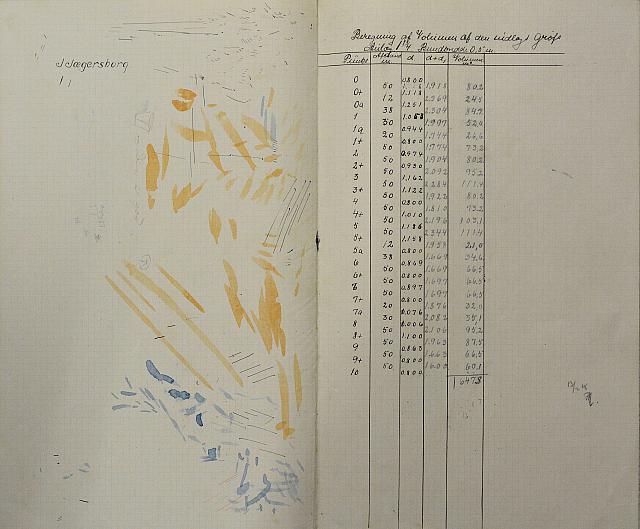 Jægersborg
Beregning af Volumen af den
Anlæg 1:1½ Bundbredde 0,5 m
Punkt Afstand m d d+d, Volumen m³
0 0.800
50 1.918 80.2
0+ 1.118
12 2.369 24.5
0a 1.251
38 2.304 84.9
1
30 1.997 52.0
1a 0.944
20 1.744 26.6
1+ 0.800
50 1.774 73.2
2 0.974
50 1.904 80.2
2+ 0.930
50 2.092 95.2
3 1.162
50 2.284 111.4
3+ 1.122
50 1.922 80.2
4 0.800
50 1.810 73.2
4+ 1.010
50 2.196 103.1
5 1.186
50 2.344 111.4
5+ 1.158
12 1.958 21.0
5a 0.800
38 1.669 54.6
6 0.869
50 1.669 66.5
6+ 0.800
50 1.697 66.5
0.897
50 1.697 66.5
7+ 0.800
20 1.876 32.0
7a 1.076
30 2.082 55.1
8 1.006
50 2.106 95.2
8+ 1.100
50 1.963 87.5
9 0.863
50 1.663 66.5
9+ 0.800
50 1.600 60.1
10 0.800